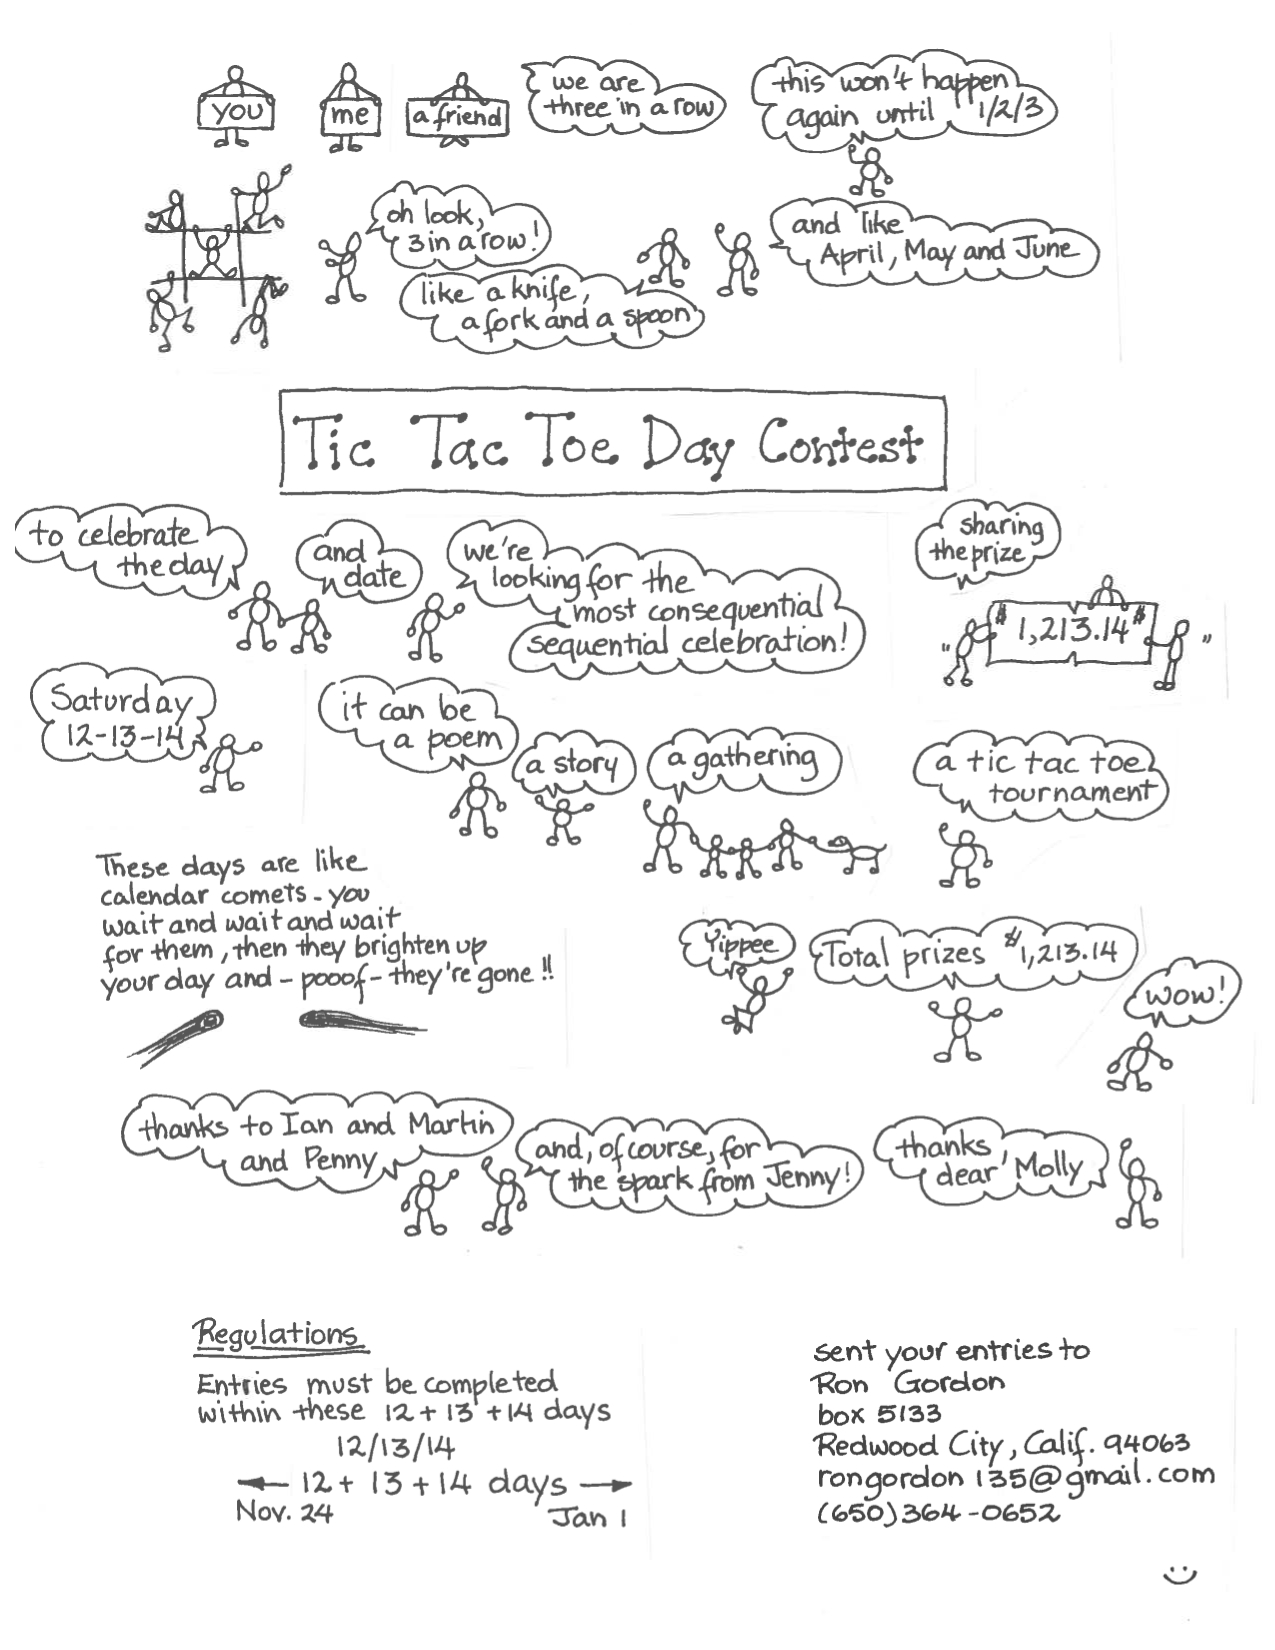 you
me
a friend
we are
three in a row
this won't happen
again until 1/2/3
oh look,
3 in a row!
like a knife,
a fork and a spoon
and like
April, May and June
Tic Tac Toe Day Contest
to celebrate
the day
and
date
we're
looking for the
most consequential
sequential celebration!
sharing
the prize
" $1,213.14 "
Saturday
12-13-14
it can be
a poem
a story
a gathering
a tic tac toe
tournament
These days are like
calendar comets - you
wait and wait and wait
for them, then they brighten up
your day and - pooof - they're gone!!
Yippee
Total prizes $1,213.14
wow!
thanks to Ian and Martin
and Penny
and, of course, for
the spark from Jenny!
thanks,
dear Molly
Regulations
Entries must be completed
within these 12 + 13 + 14 days
12/13/14
12 + 13 + 14 days
Nov. 24
Jan 1
sent your entries to
Ron Gordon
box 5133
Redwood City, Calif. 94063
rongordon135@gmail.com
(650)364-0652